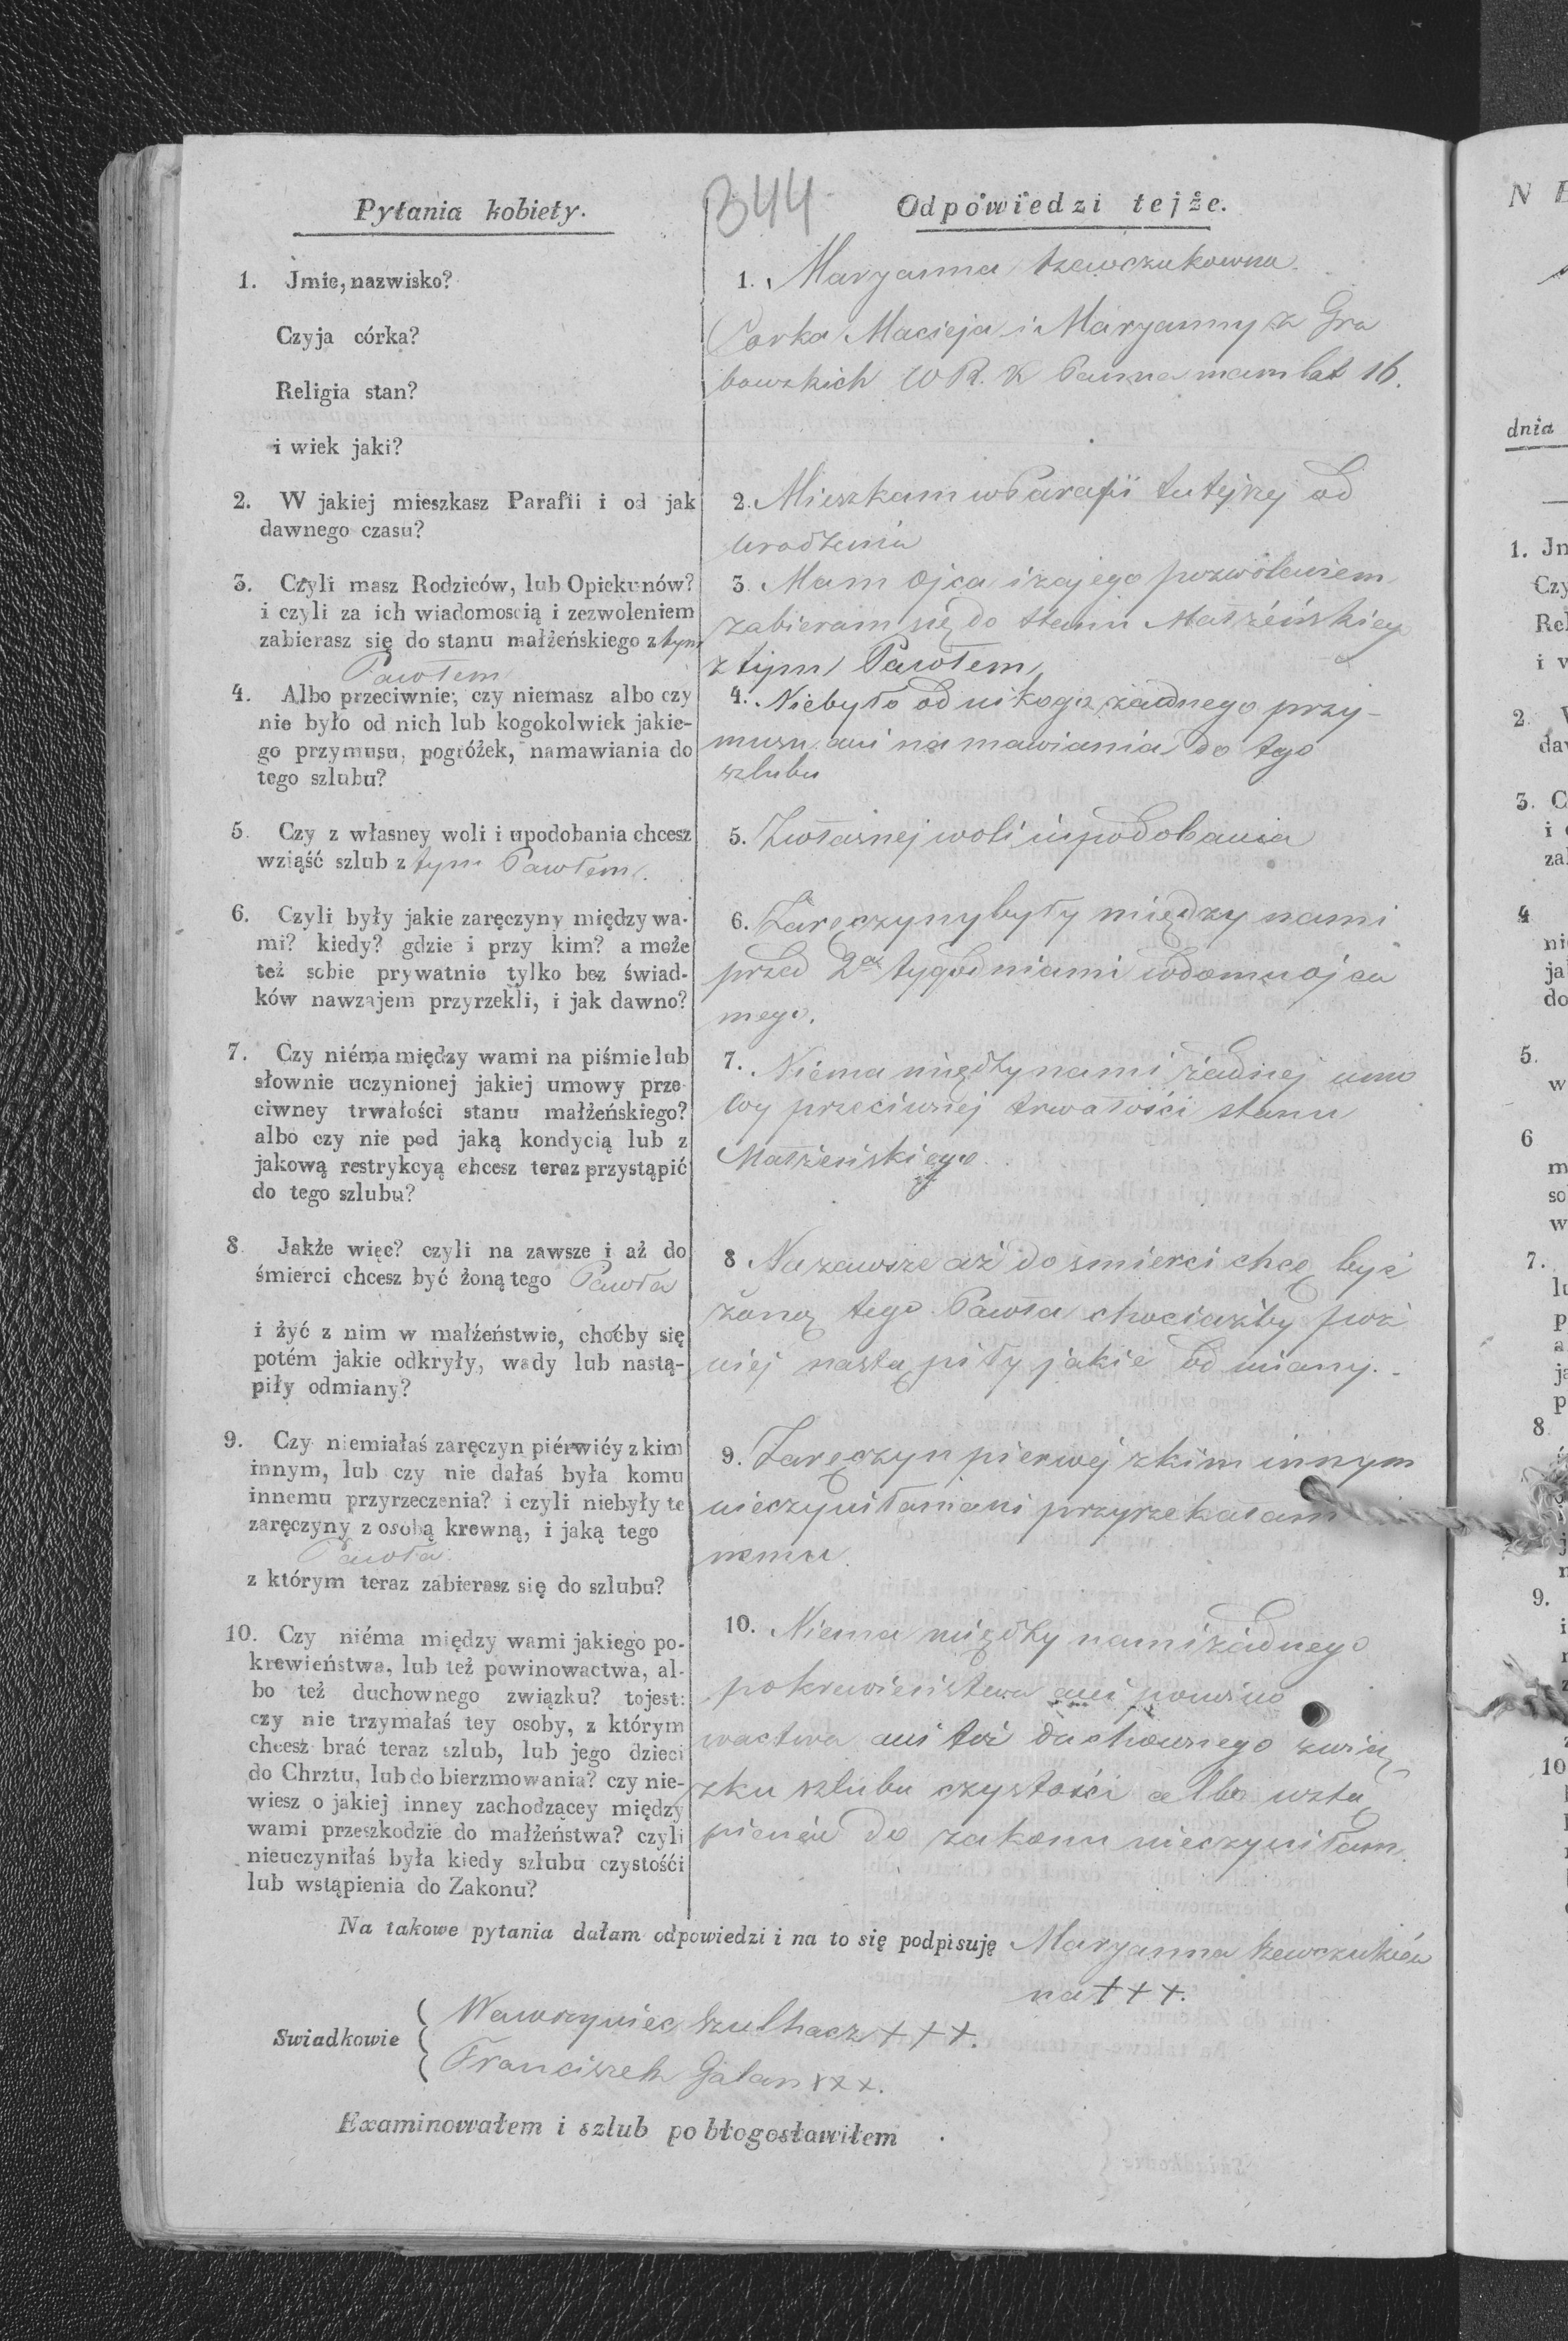 344
Pytania kobiety.
1. Jmie, nazwisko?
Czyja córka?
Religia stan?
i wiek jaki?
2. W jakiej mieszkasz Parafii i od jak
dawnego czasu?
3. Czyli masz Rodziców, lub Opiekunów?
i czyli za ich wiadomoscią i zezwoleniem
zabierasz się do stanu małżeńskiego z tym
Pawłem
4. Albo przeciwnie, czy niemasz albo czy
nie było od nich lub kogokolwiek jakie-
go przymusu, pogróżek, namawiania do
tego szlubu?
5. Czy z własney woli i upodobania chcesz
wziąść szlub z tym Pawłem.
6. Czyli były jakie zaręczyny między wa-
mi? kiedy? gdzie i przy kim? a może
też sobie prywatnie tylko bez świad-
ków nawzajem przyrzekli, i jak dawno?
7. Czy niéma między wami na piśmie lub
słownie uczynionej jakiej umowy prze
ciwney trwałości stanu małżeńskiego?
albo czy nie pod jaką kondycią lub z
jakową restrykcyą chcesz teraz przystąpić
do tego szlubu?
8 Jakże więc? czyli na zawsze i aż do
śmierci chcesz być żoną tego Pawła
i żyć z nim w małżeństwie, choćby się
potém jakie odkryły, wady lub nastą-
piły odmiany?
9. Czy niemiałaś zaręczyn piérwiéy z kim
innym, lub czy nie dałaś była komu
innemu przyrzeczenia? i czyli niebyły te
zaręczyny z osobą krewną, i jaką tego
Pawła
z którym teraz zabierasz się do szlubu?
10. Czy niéma między wami jakiego po-
krewieństwa, lub też powinowactwa, al-
bo też duchownego związku? tojest:
czy nie trzymałaś tey osoby, z którym
chcesz brać teraz szlub, lub jego dzieci
do Chrztu, lub do bierzmowania? czy nie-
wiesz o jakiej inney zachodzącey między
wami przeszkodzie do małżeństwa? czyli
nieuczyniłaś była kiedy szlubu czystośći
lub wstąpienia do Zakonu?
Odpowiedzi tejże.
1. Maryanna
Corka Macieja i Maryanny z Gra
bowskich W R. K Panna mam lat 16.
2. Mieszkam w Parafii tutejszej od
urodzenia
3. Mam ojca i za jego pozwoleniem
zabieram się do stanu Małżeńskiego
z tym Pawłem
4. Niebyło od nikogo żadnego przy-
musu ani namawiania do tego
szlubu
5. Z własnej woli i upodobania
6. Zaręczyny były między nami
przed 2a tygodniami w domu ojca
mego.
7. Niema między nami żadnej umo
wy przeciwnej trwałości stanu
Małżeńskiego
8 Na zawsze aż do smierci chcę być
żoną tego Pawła chociażby poż
niej nastąpiły jakie odmiany.
9. Zaręczyn pierwej z kim innym
nieczyniłam ani przyrzekałam
nemu
10. Niema między nami żadnego
pokrewieństwa ani powino
wactwa ani też duchownego związ
zku szlubu czystości albo wstą
pienia do zakonu nieczyniłam.
Na takowe pytania dałam odpowiedzi i na to się podpisuję Maryanna
na + + +.
Swiadkowie
Wawrzyniec + + +.
Franciszek Galan x x x.
Examinowałem i szlub pobłogosławiłem
N
dnia
1. Jn
Czy
Rel
i w
2.
daw
3. C
i
4
ni
ja
do
5.
w
6
m
so
w
7.
8.
9.
10